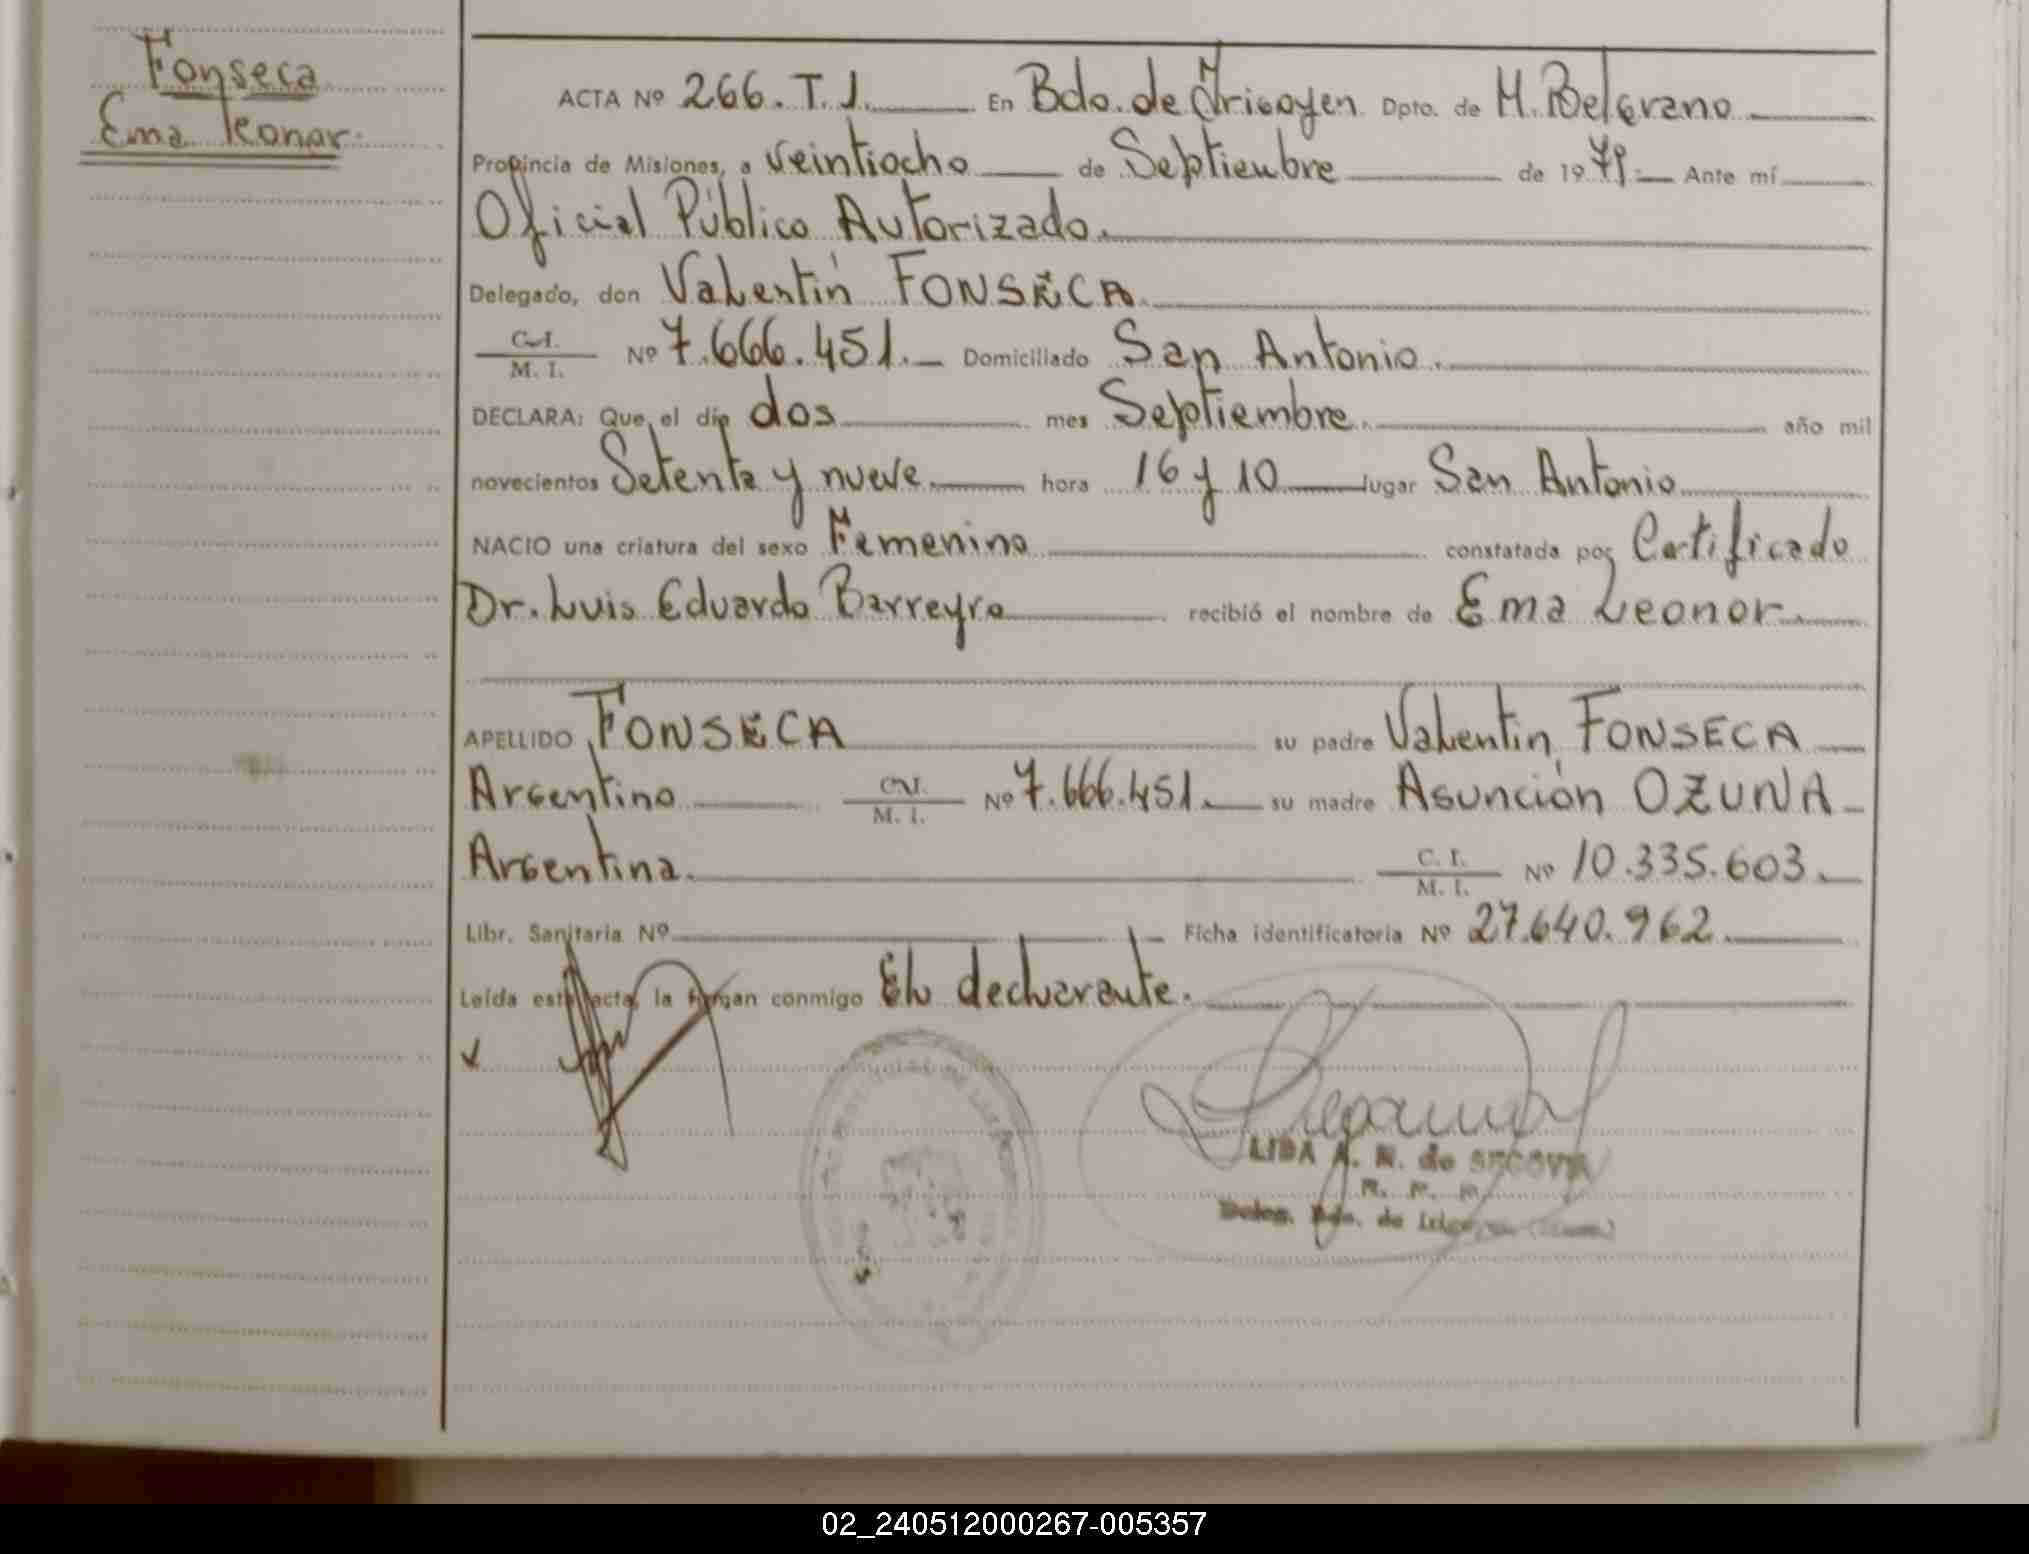 Fonseca
Ema Leonor
ACTA Nº 266. T. I. En Bdo. de Irigoyen Dpto. de M. Belgrano
Provincia de Misiones, a veintiocho de Septiembre de 1979.- Ante mí
Oficial Público Autorizado.
Delegado, don Valentin FONSECA
C.I. M. I. Nº 7.666.451. Domiciliado San Antonio.
DECLARA: Que el día dos mes Septiembre. año mil
novecientos Setenta y nueve. hora 16 y 10 lugar San Antonio
NACIO una criatura del sexo Femenino constatada por Certificado
Dr. Luis Eduardo Barreyro recibió el nombre de Ema Leonor.
APELLIDO FONSECA su padre Valentin FONSECA
Argentino C.I. M. I. Nº 7.666.451. su madre Asunción OZUNA
Argentina. C. I. M. I. Nº 10.335.603.
Libr. Sanitaria Nº Ficha identificatoria Nº 27.640.962.
Leída esta acta, la firman conmigo El declarante.
LIDA A. N. de SEGOVIA
Deleg. Bdo. de Irigoyen
02_240512000267-005357